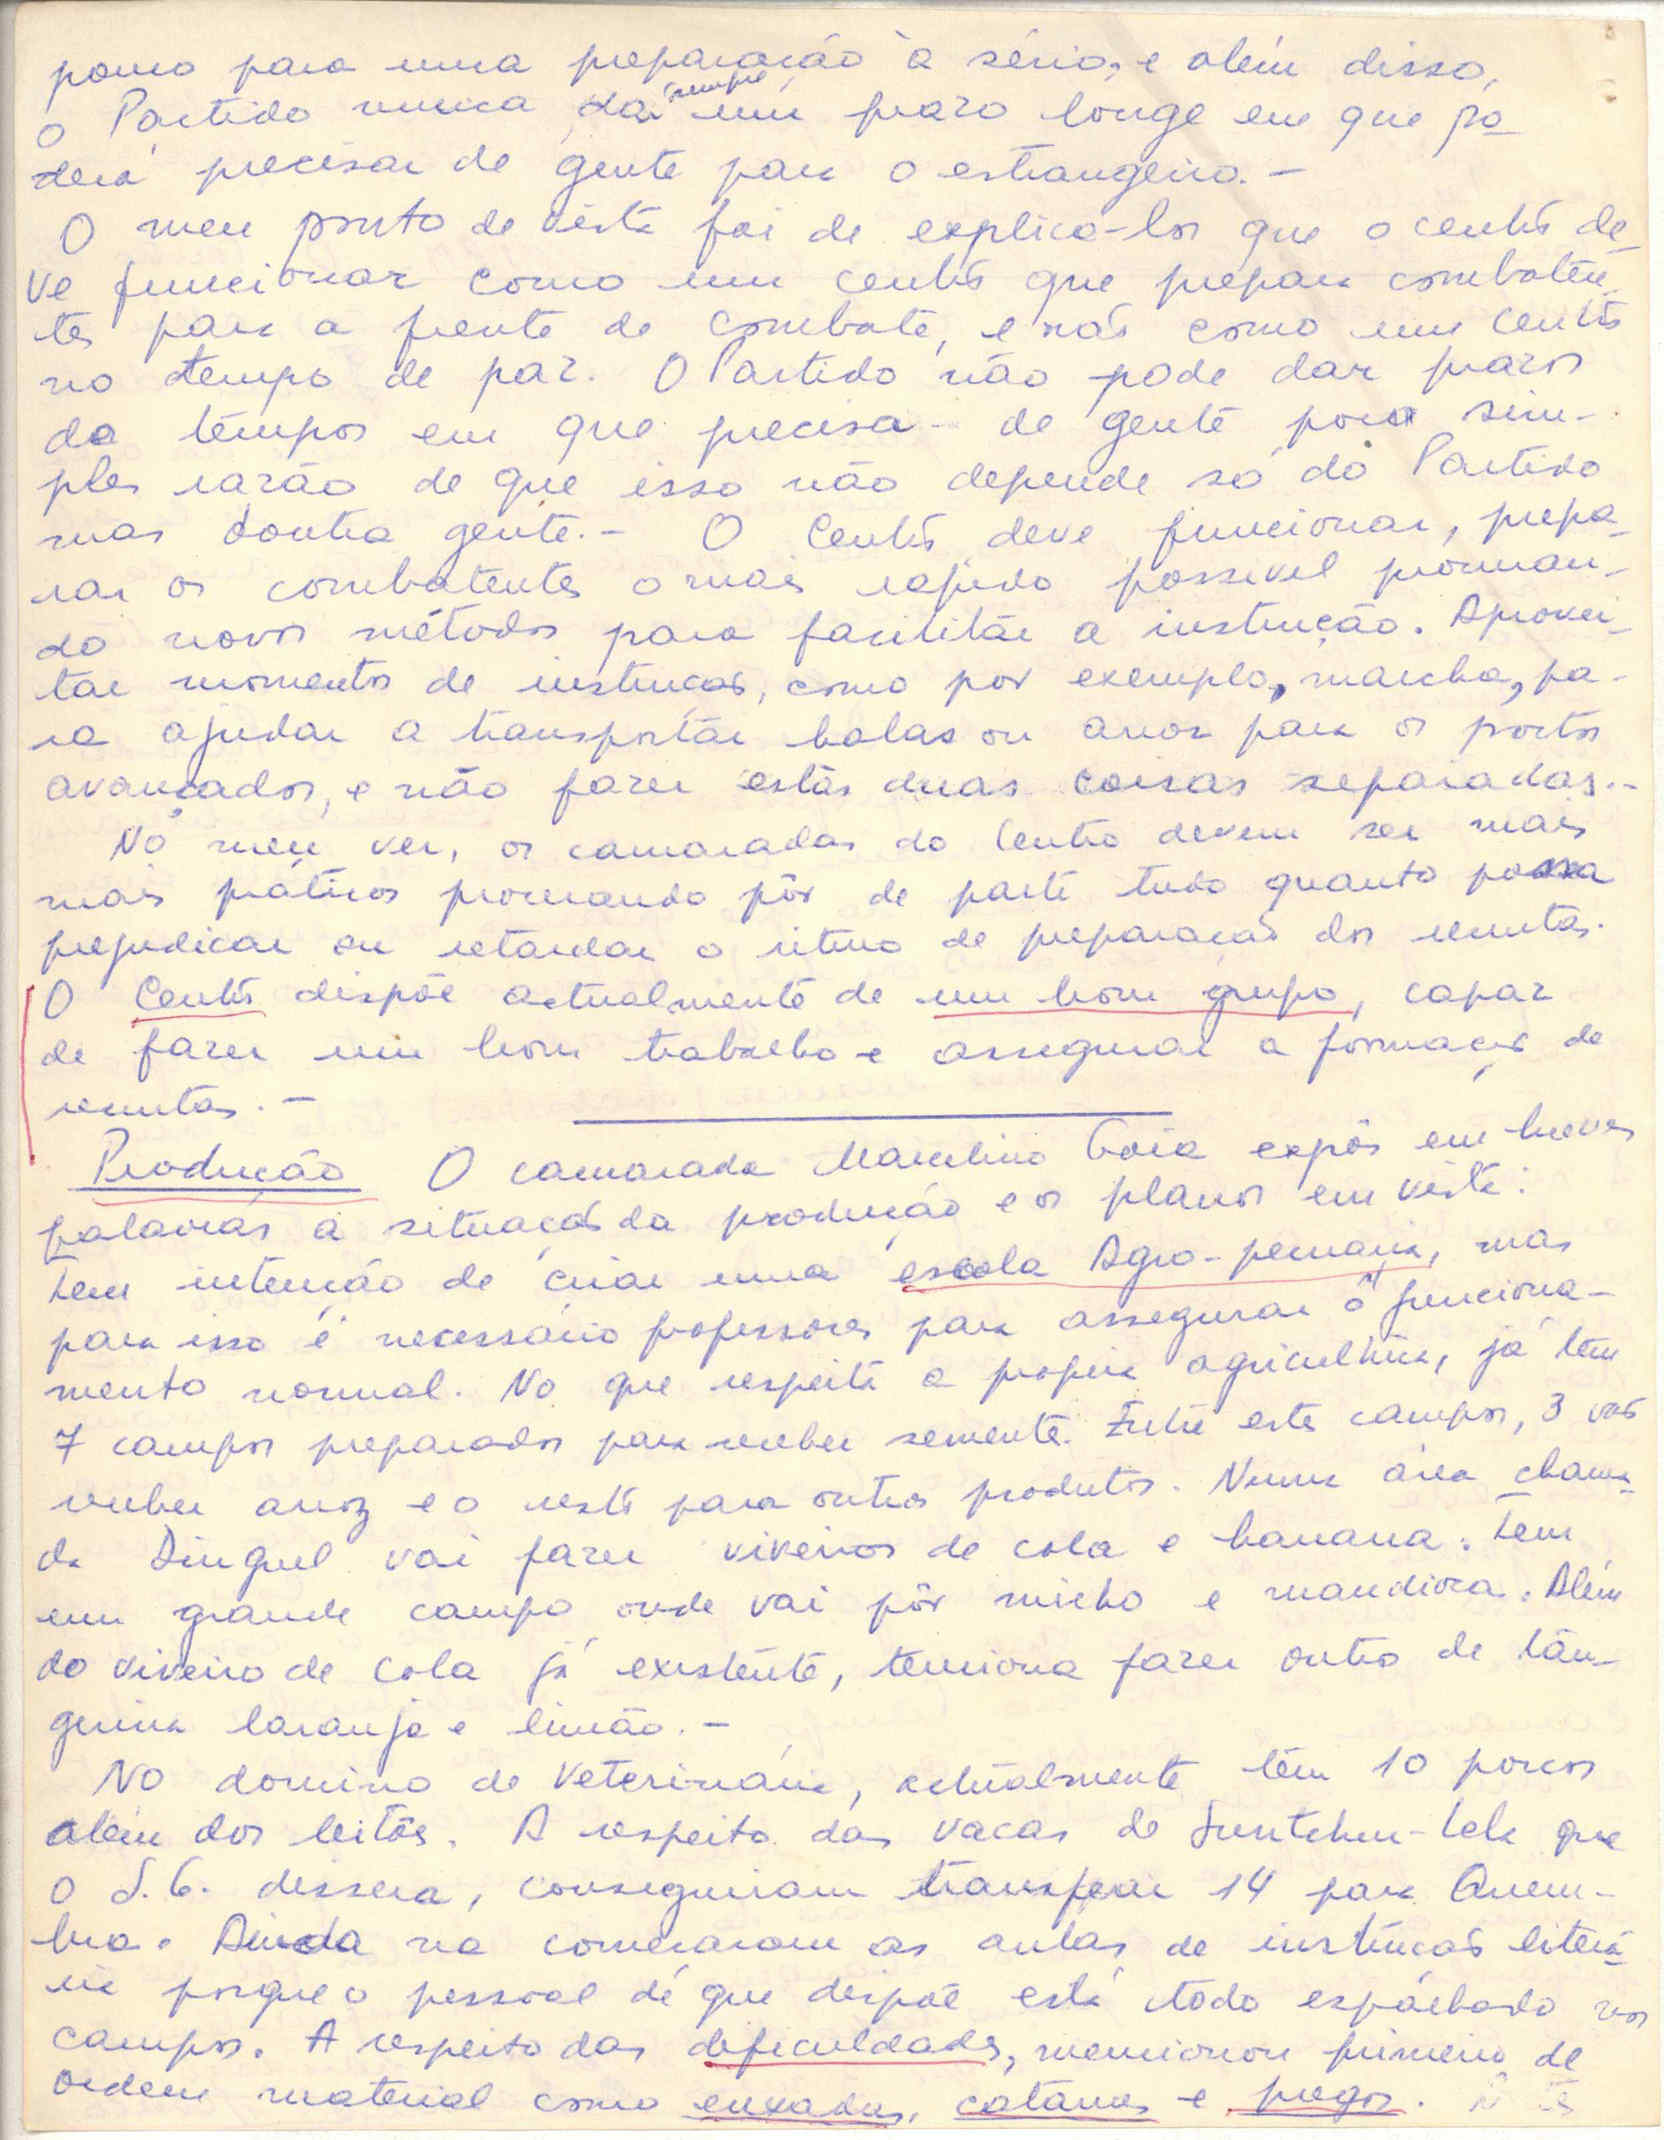 pouco para uma preparação à sério, e além disso,
o Partido nunca dá sempre um prazo longe em que po
derá precisar de gente para o estrangeiro. -
O meu ponto de vista foi de explica-los que o centro de
ve funcionar como um centro que prepara combaten
tes para a frente de combate, e não como um centro
no tempo de paz. O Partido não pode dar prazos
da tempos em que precisa de gente pora sim-
ples razão de que isso não depende só do Partido
mas doutra gente. - O Centro deve funcionar, prepa-
rar os combatentes o mais rapido possivel procuran-
do novos métodos para facilitar a instrução. Aprovei-
tar momentos de instrução, como por exemplo, marcha, pa-
ra ajudar a transportar balas ou arroz para os postos
avançados, e não fazer estas duas coisas separadas. -
No meu ver, os camaradas do Centro devem ser mais
mais práticos procurando pôr de parte tudo quanto possa
prejudicar ou retardar o ritmo de preparação dos recrutas.
O Centro dispõe actualmente de um bom grupo, capaz
de fazer um bom trabalho e assegurar a formação de
recrutas. -
Produção O camarada Marcelino expôs em breves
palavras a situação da produção e os planos em vista:
tem intenção de criar uma escola Agro-pecuaria, mas
para isso é necessário professores para assegurar o funciona-
mento normal. No que respeita a propria agricultura, já tem
7 campos preparados para receber semente. Entre estes campos, 3 vão
receber arroz e o resto para outros produtos. Numa área chama
da Dinguel vai fazer viveiros de cola e banana. Tem
um grande campo onde vai pôr micho e mandioca. Além
do viveiro de cola já existente, tenciona fazer outro de tân-
gerina laranja e limão. -
No domino de Veterinária, actualmente têm 10 porcos
além dos leitões. A respeito das vacas de que
o S.G. dissera, conseguiram transferir 14 para
Ainda na começaram as aulas de instrução literá
ria porque o pessoal de que dispõe está todo espalhado nos
campos. A respeito das dificuldades, mencionou primeiro de
ordem material como enxadas, catanas e pregos.